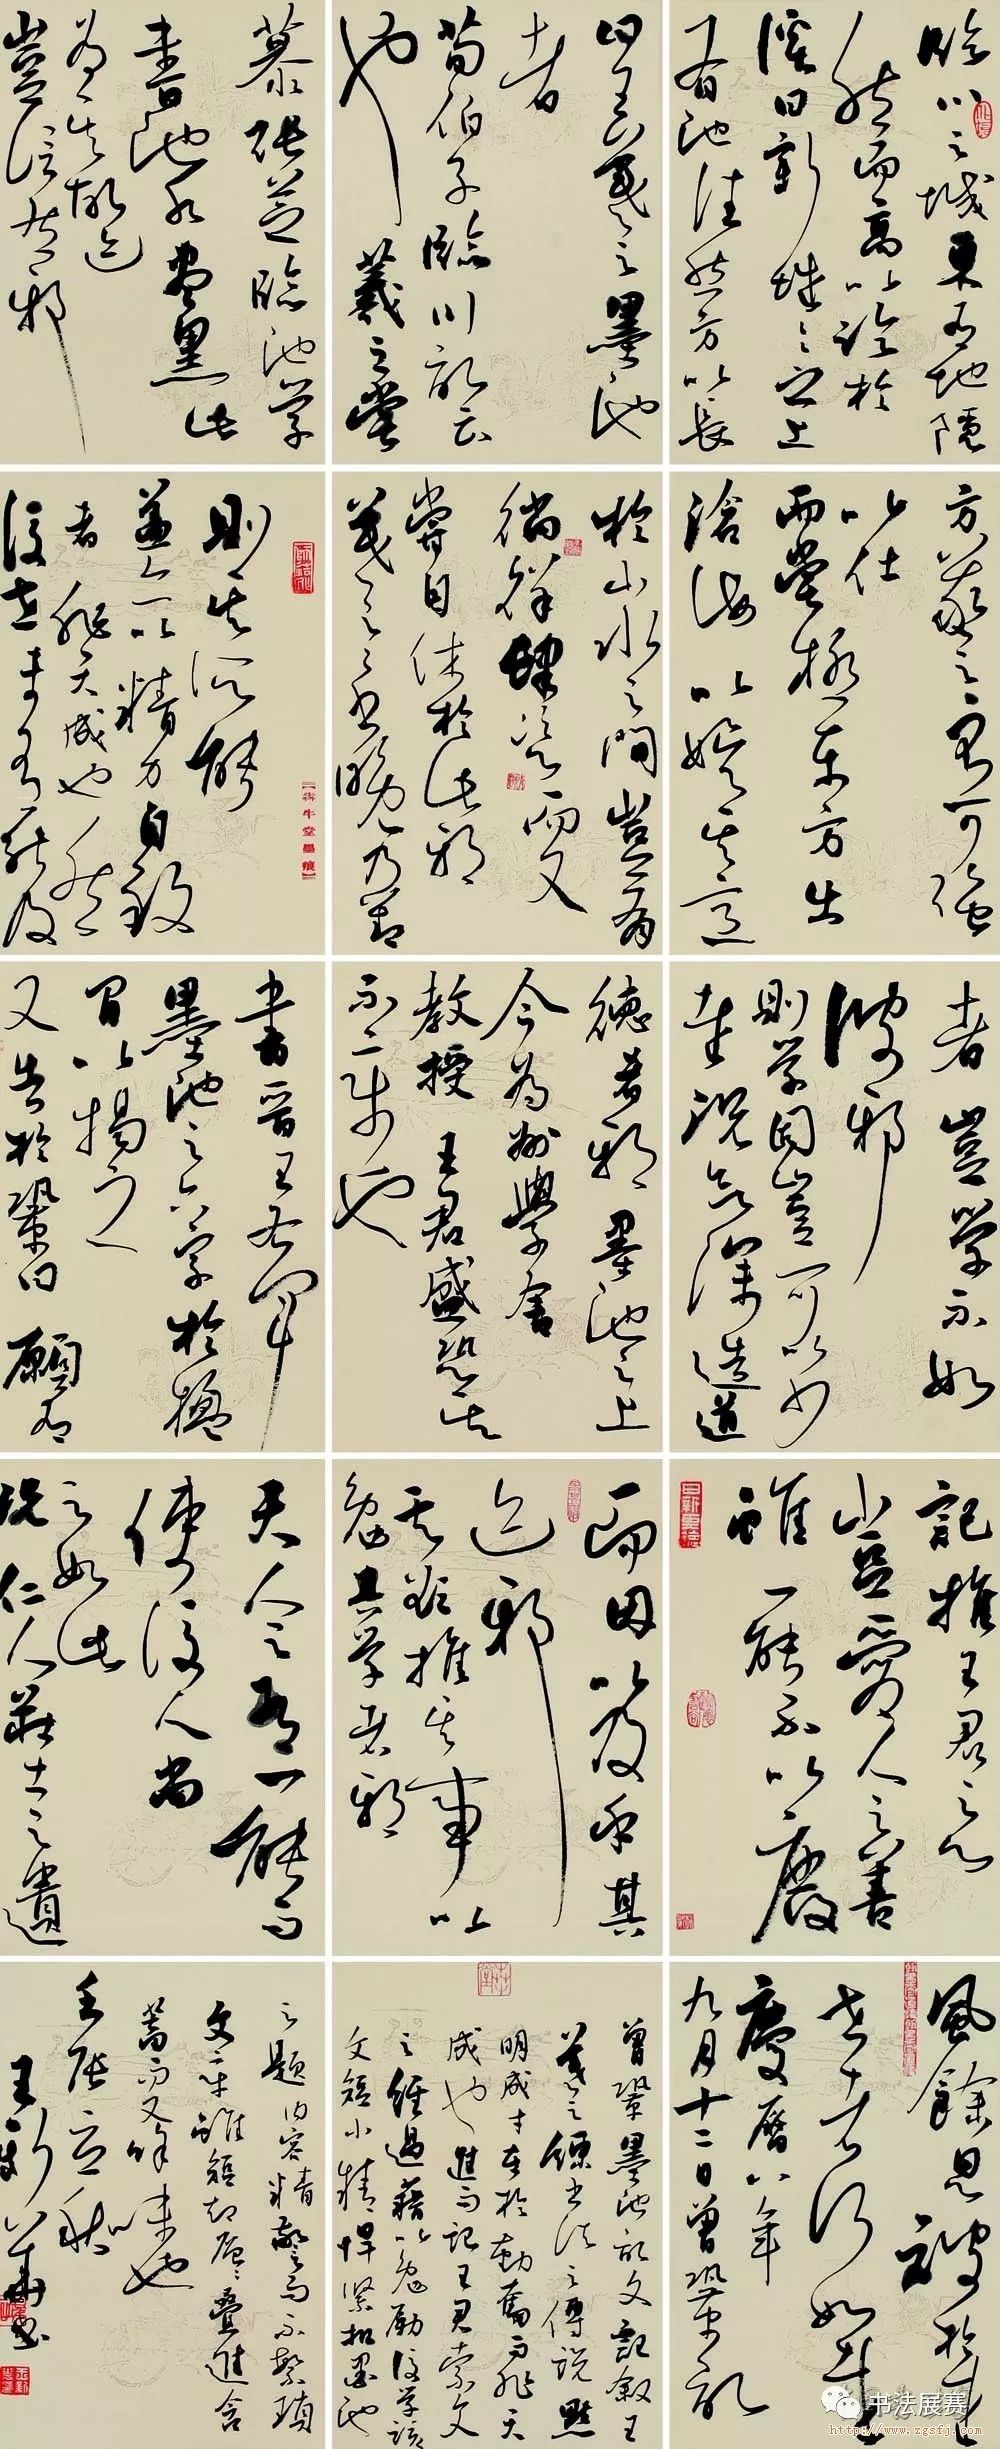 臨川之城東有地隱
然而高以臨於
溪曰新城之上
有池洼然方以長
曰王羲之之墨池
者
荀伯子臨川記云
也 羲之嘗
慕張芝臨池學
書池水盡黑此
為其故迹
豈信然邪
方羲之之不可強
以仕
而嘗極東方出
滄海以娛其意
於山水之間豈有
徜徉肆恣而又
嘗自休於此邪
羲之之書晚乃善
則其所能
蓋亦以精力自致
者非天成也然
後世未有能及
犇牛堂墨痕
者豈學不如
彼邪
則學固豈可以少
哉況欲深造道
德者邪墨池之上
今為州學舍
教授王君盛恐其
不章也
書晉王右軍
墨池之六字於楹
間以揭之
又告於鞏曰願有
記推王君之心
豈愛人之善
雖一能不以廢
日新其德
而因以及乎其
迹邪
其欲推其事以
勉其學者邪
夫人之有一能而
使後人尚
之如此
況仁人莊士之遺
風餘思被於來
世者何如哉
慶曆八年
九月十二日曾鞏記
曾鞏墨池記文記敘王
羲之練書法之傳說點
明成才在於勤奮而非天
成也進而記王君索文
之經過藉以勉勵後學該
文短小精悍緊扣墨池
之題內容精警而不繁瑣
文章雖短却層疊進含
蓄而又餘味也
壬辰立秋
王新 書
书法展赛
http://www.zgsfj.com